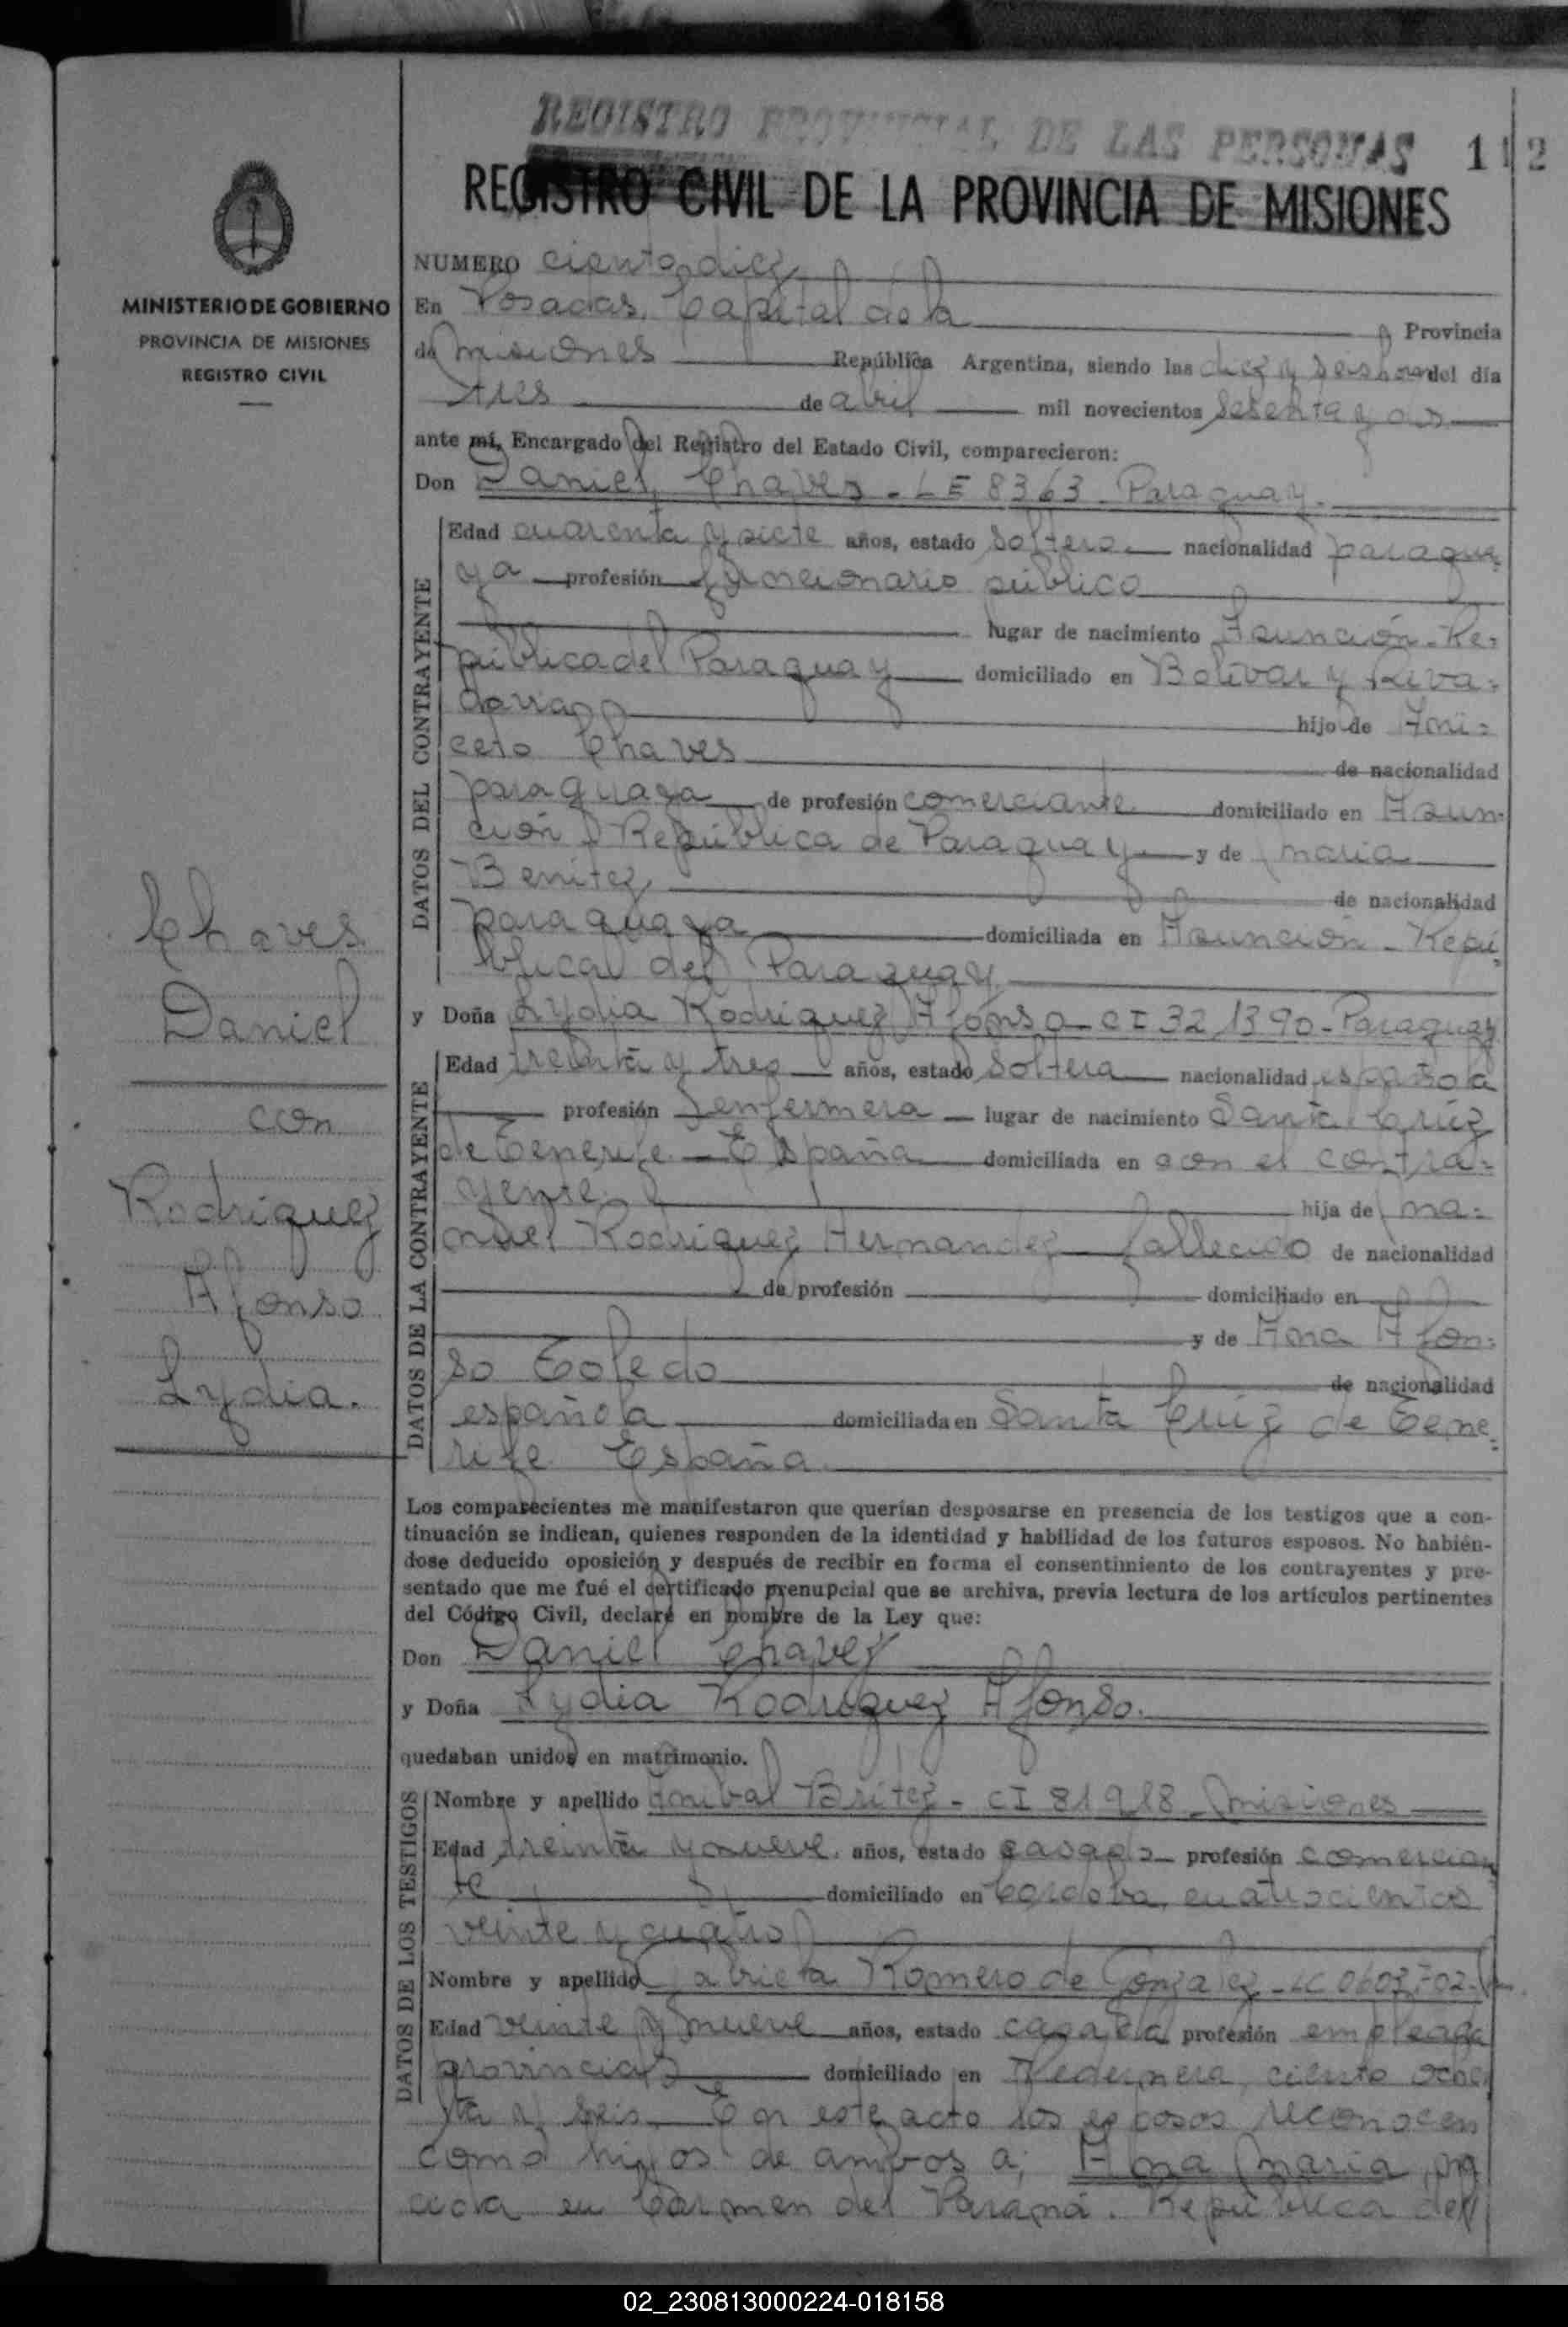 REGISTRO PROVINCIAL DE LAS PERSONAS 112
REGISTRO CIVIL DE LA PROVINCIA DE MISIONES
MINISTERIO DE GOBIERNO
PROVINCIA DE MISIONES
REGISTRO CIVIL
Chaves
Daniel
con
Rodriguez
Afonso
Lydia.
NUMERO ciento diez
En Posadas, Capital de la Provincia
de Misiones República Argentina, siendo las diez y seis horas del día
tres de abril mil novecientos sesenta y dos
ante mí, Encargado del Registro del Estado Civil, comparecieron:
Don Daniel Chaves - LE 8363 - Paraguay.
DATOS DEL CONTRAYENTE
Edad cuarenta y siete años, estado soltero nacionalidad paragua-
ya profesión funcionario público
lugar de nacimiento Asunción - Re-
pública del Paraguay domiciliado en Bolivar y Riva-
davia hijo de Ani-
ceto Chaves de nacionalidad
paraguaya de profesión comerciante domiciliado en Asun-
ción República de Paraguay y de Maria
Benitez de nacionalidad
paraguaya domiciliada en Asunción - Repú-
blica del Paraguay
y Doña Lydia Rodriguez Afonso - CI 321390 - Paraguay
DATOS DE LA CONTRAYENTE
Edad treinta y tres años, estado soltera nacionalidad española
profesión enfermera lugar de nacimiento Santa Crúz
de Tenerife - España domiciliada en con el contra-
yente hija de Ma-
nuel Rodriguez Hernandez fallecido de nacionalidad
de profesión domiciliado en
y de Ana Afon-
so Toledo de nacionalidad
española domiciliada en Santa Crúz de Tene-
rife España.
Los comparecientes me manifestaron que querían desposarse en presencia de los testigos que a con-
tinuación se indican, quienes responden de la identidad y habilidad de los futuros esposos. No habién-
dose deducido oposición y después de recibir en forma el consentimiento de los contrayentes y pre-
sentado que me fué el certificado prenupcial que se archiva, previa lectura de los artículos pertinentes
del Código Civil, declaré en nombre de la Ley que:
Don Daniel Chavez
y Doña Lydia Rodriguez Afonso.
quedaban unidos en matrimonio.
DATOS DE LOS TESTIGOS
Nombre y apellido Anibal Britez - CI 81918 - Misiones
Edad treinta y nueve años, estado casado profesión comercian
te domiciliado en Cordoba, cuatrocientos
veinte y cuatro
Nombre y apellido Gabriela Romero de Gonzalez - LC
Edad veinte y nueve años, estado casada profesión empleada
provincial domiciliado en ciento ochen
ta y seis. En este acto los esposos reconocen
como hijos de ambos a; Ana Maria, na
cida en Carmen del Paraná. República del
02_230813000224-018158